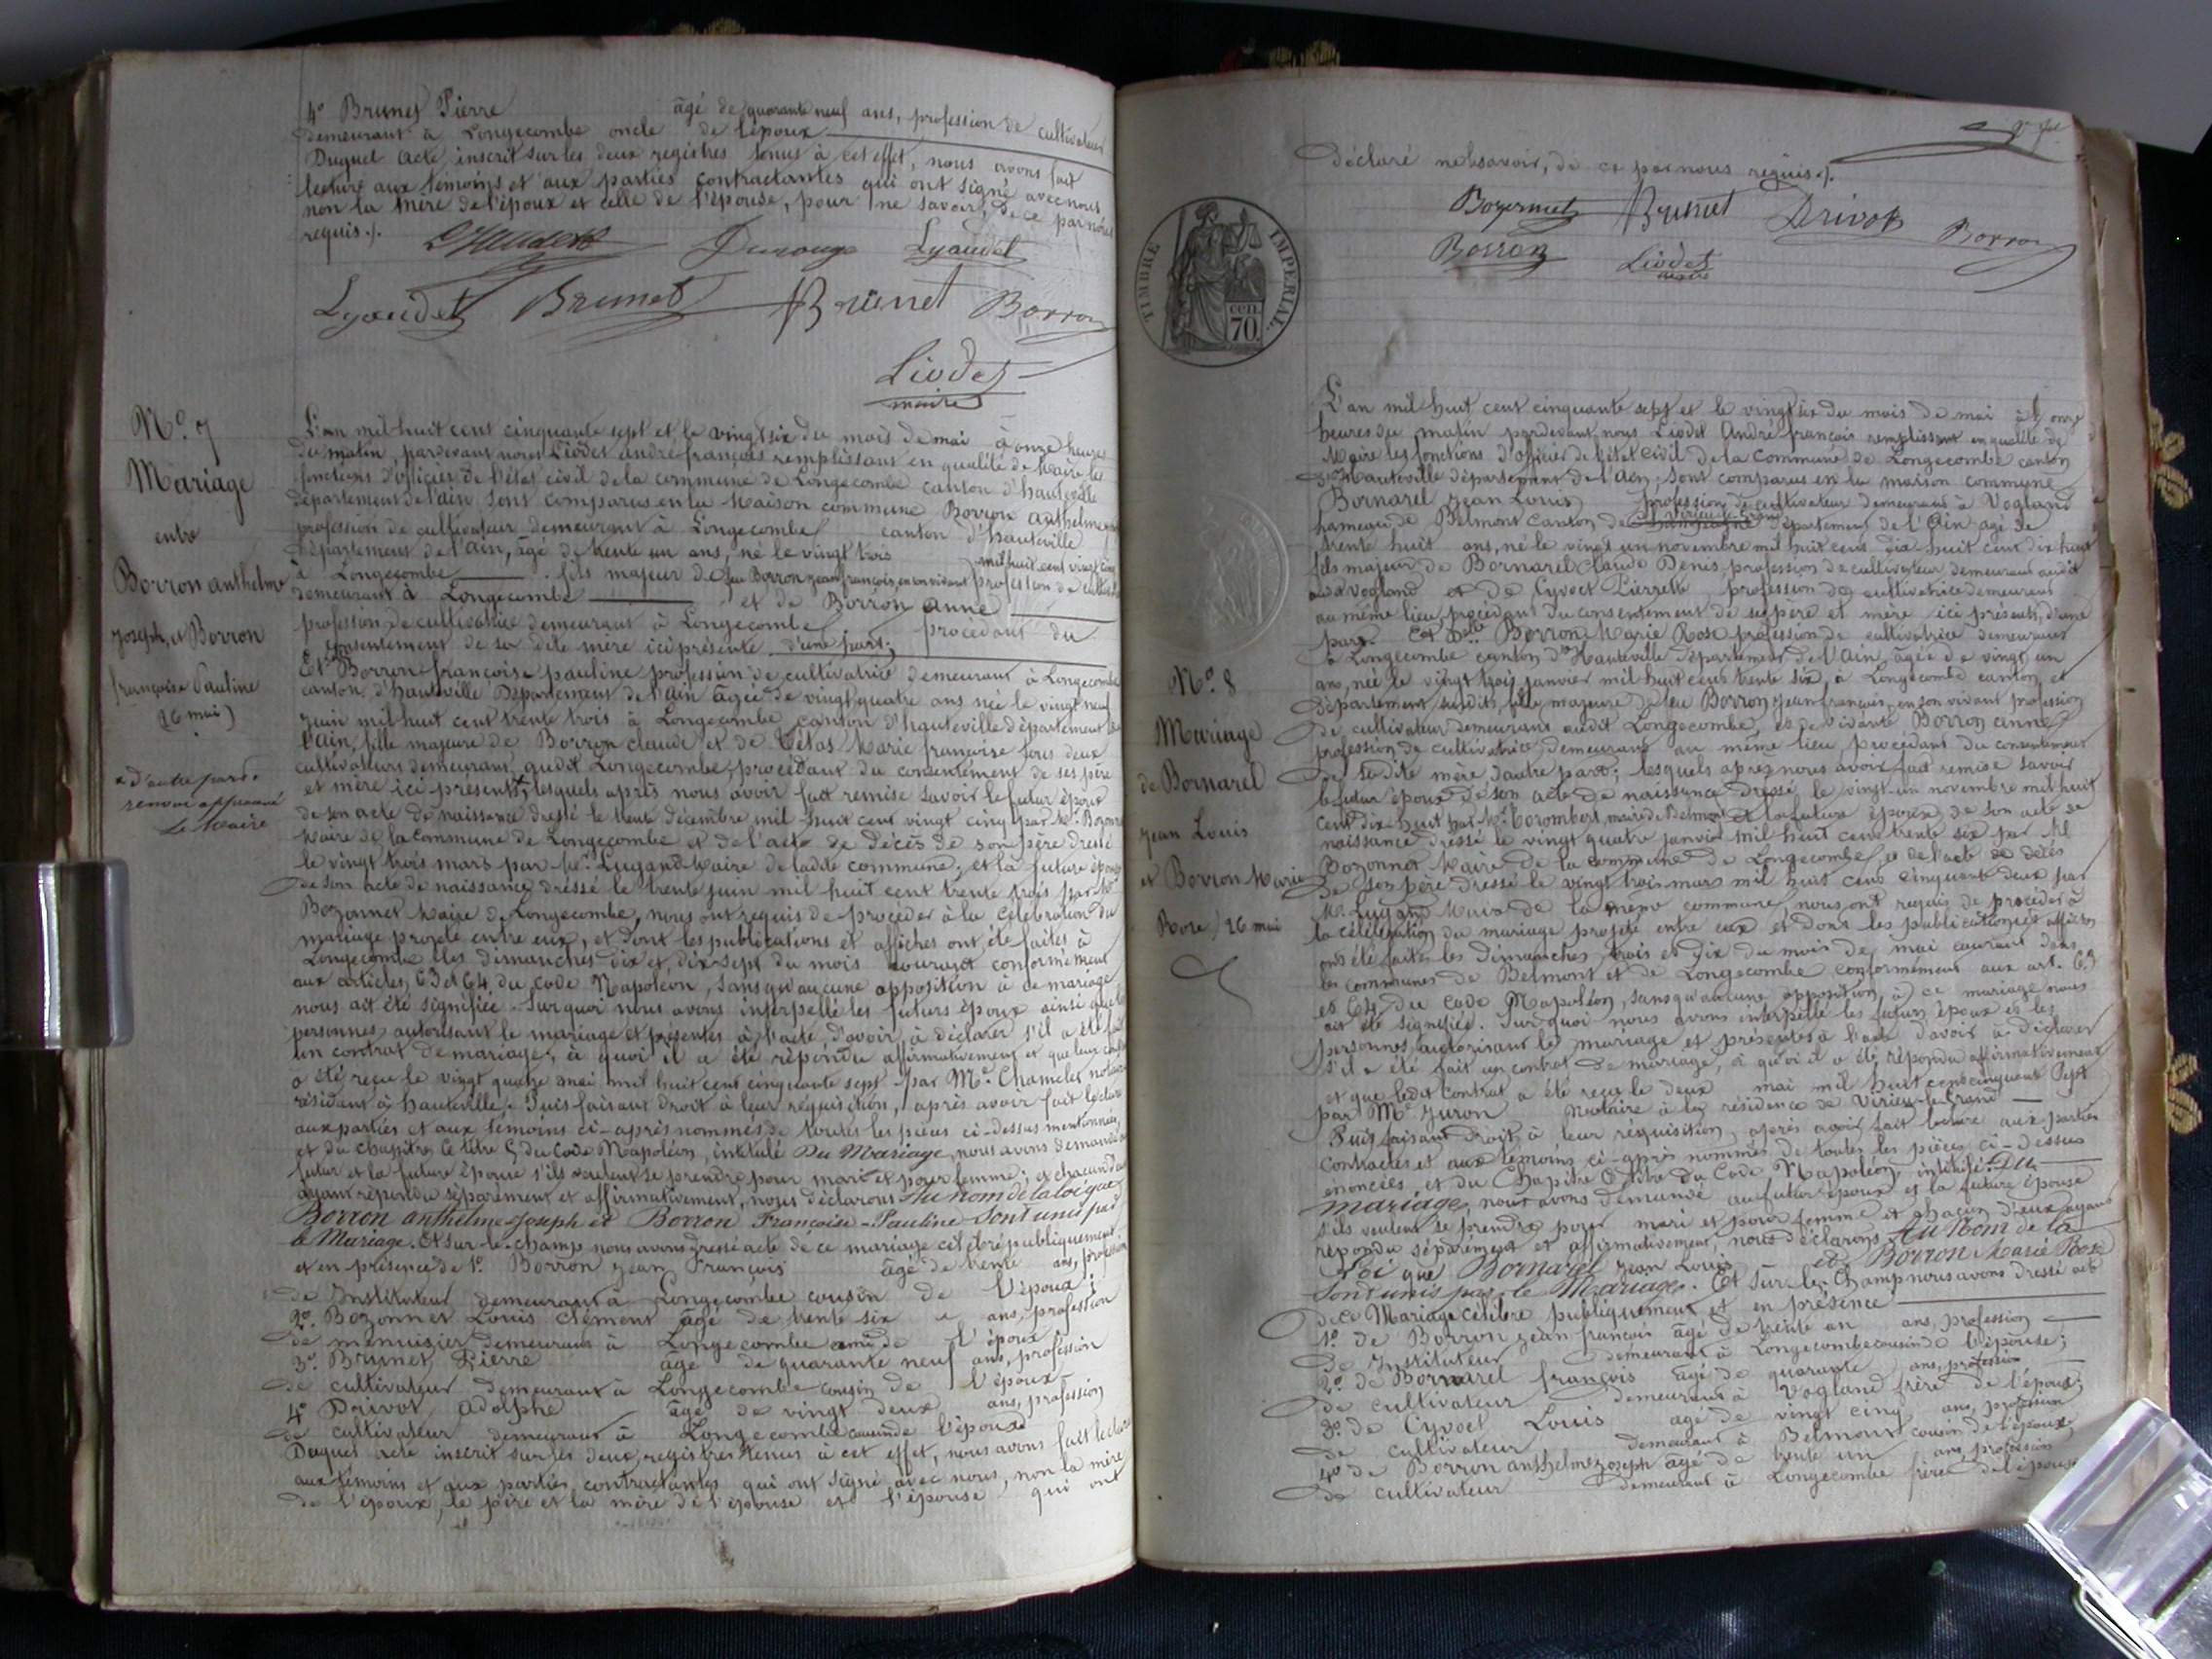 4° Brunet Pierre âgé de quarante neuf ans, profession de cultivateur
demeurant à Longecombe oncle de l'époux
Duquel acte, inscrit sur les deux registres tenus à cet effet, nous avons fait
lecture aux témoins et aux parties contractantes qui ont signé avec nous,
non la mère de l'époux et celle de l'épouse, pour ne savoir, de ce par nous
requis ./.
Lyaudet
Lyaudet Brunet Brunet Borron
Liodet
maire
N° 7
Mariage
entre
Borron anthelme
joseph, et Borron
françoise Pauline
(26 mai)
x d'autre part.
renvoi approuvé
Le Maire
L'an mil huit cent cinquante sept et le vingt six du mois de mai à onze heures
du matin pardevant nous Liodet andré françois remplissant en qualité de Maire les
fonctions d'officier de l'état civil de la commune de Longecombe canton d'hauteville
département de l'ain sont comparus en la Maison commune Borron anthelme
profession de cultivateur demeurant à Longecombe canton d'hauteville
département de l'ain, âgé de trente un ans, né le vingt trois mil huit cent vingt cinq
à Longecombe fils majeur de feu Borron jean françois en son vivant profession de
demeurant à Longecombe et de Borron anne
profession de cultivatrice demeurant à Longecombe procédant du
consentement de sa dite mère ici présente d'une part;
Et Borron françoise pauline profession de cultivatrice demeurant à Longecombe
canton d'hauteville Département de l'ain âgée de vingt quatre ans née le vingt neuf
juin mil huit cent trente trois à Longecombe canton d'hauteville département de
l'ain, fille majeure de Borron claude et de Marie françoise tous deux
cultivateurs demeurant audit Longecombe, procédant du consentement de ses père
et mère ici présents x lesquels après nous avoir fait remise savoir le futur époux
de son acte de naissance dressé le trente décembre mil huit cent vingt cinq par Mr Bozonnet
Maire de la commune de Longecombe et de l'acte de décès de son père dressé
le vingt trois mars par Mr Lugand Maire de ladite commune; et la future épouse
de son acte de naissance dressé le trente juin mil huit cent trente trois par Mr
Bozonnet Maire de Longecombe, nous ont requis de procéder à la célébration du
mariage projeté entre eux, et dont les publications et affiches ont été faites à
Longecombe les dimanches dix et dix sept du mois courant conformément
aux articles 63 et 64 du code Napoléon, sans qu'aucune opposition à ce mariage
nous ait été signifiée. Surquoi nous avons interpellé les futurs époux ainsi que les
personnes autorisant le mariage et présentes à l'acte, d'avoir à déclarer s'il a été fait
un contrat de mariage, à quoi il a été répondu affirmativement et que leur contrat
a été reçu le vingt quatre mai mil huit cent cinquante sept par Me Chamelet notaire
résidant à hauteville. Puis faisant droit à leur réquisition, après avoir fait lecture
aux parties et aux témoins ci-après nommés de toutes les pièces ci-dessus mentionnées
et du chapitre 6 titre 5 du Code Napoléon, intitulé Du Mariage, nous avons demandé au
futur et la future épouse s'ils veulent se prendre pour mari et pour femme; et chacun d'eux
ayant répondu séparément et affirmativement, nous déclarons Au nom de la loi que
Borron anthelme Joseph et Borron Françoise-Pauline sont unis par
le Mariage. Et sur le champ nous avons dressé acte de ce mariage célébré publiquement
et en présence de 1° Borron jean François âgé de trente ans, profession
de Instituteur demeurant à Longecombe cousin de l'époux;
2° Bozonnet Louis Clément âgé de trente six ans, profession
de menuisier demeurant à Longecombe ami de l'époux
3° Brunet Pierre âgé de quarante neuf ans, profession
de cultivateur demeurant à Longecombe cousin de l'époux
4° Drivot Adolphe âgé de vingt deux ans, profession
de cultivateur demeurant à Longecombe cousin de l'épouse
Duquel acte inscrit sur les deux registres tenus à cet effet, nous avons fait lecture
aux témoins et aux parties contractantes qui ont signé avec nous, non la mère
de l'époux, le père et la mère de l'épouse et l'épouse qui ont
déclaré ne le savoir, de ce par nous requis ./.
Bozonnet Brunet Drivot Borron
Borron Liodet
maire
TIMBRE IMPERIAL
cen.
70.
N° 8
Mariage
de Bornarel
jean Louis
et Borron Marie
Rose / 26 mai
L'an mil huit cent cinquante sept et le vingt six du mois de mai à onze
heures du matin pardevant nous Liodet André françois remplissant en qualité de
Maire les fonctions d'officier de l'état civil de la Commune de Longecombe canton
d'Hauteville département de l'Ain; sont comparus en la maison commune
Bornarel Jean Louis profession de cultivateur demeurant à Vogland
hameau de Belmont Canton de virieu le grand département de l'Ain âgé de
trente huit ans, né le vingt un novembre mil huit cent dix huit cent dix huit
fils majeur de Bornarel Claude Denis, profession de cultivateur demeurant audit
Vogland et de Cyvoct Pierrette profession de cultivatrice demeurant
au même lieu, procédant du consentement de ses père et mère ici présents, d'une
part. Et Delle Borron Marie Rose profession de cultivatrice demeurant
à Longecombe canton d'Hauteville département de l'Ain, âgée de vingt un
ans, née le vingt trois janvier mil huit cent trente six, à Longecombe canton et
département susdits, fille majeure de feu Borron jean françois, en son vivant profession
de cultivateur demeurant audit Longecombe, et de vivante Borron anne
profession de cultivatrice demeurant au même lieu, procédant du consentement
de sa dite mère d'autre part; lesquels après nous avoir fait remise savoir
le futur époux de son acte de naissance dressé le vingt-un novembre mil huit
cent dix huit par Mr Corombert, maire de Belmont et la future épouse de son acte de
naissance dressé le vingt quatre janvier mil huit cent trente six par Mr
Bozonnet Maire de la commune de Longecombe, et de l'acte de décès
de son père dressé le vingt trois mars mil huit cent cinquante deux par
Mr Lugand Maire de la même commune, nous ont requis de procéder à
la célébration du mariage projeté entre eux et dont les publications et affiches
ont été faites les dimanches trois et dix du mois de mai courant dans
les communes de Belmont et de Longecombe conformément aux art. 63
et 64 du Code Napoléon, sans qu'aucune opposition à ce mariage nous
ait été signifiée. Surquoi nous avons interpellé les futurs époux et les
personnes autorisant le mariage et présentes à l'acte d'avoir à déclarer
s'il a été fait un contrat de mariage, à quoi il a été répondu affirmativement
et que ledit contrat a été reçu le deux mai mil huit cent cinquante sept
par Me Juron Notaire à la résidence de Virieu-le-Grand
Puis faisant droit à leur réquisition, après avoir fait lecture aux parties
contractantes et aux témoins ci-après nommés de toutes les pièces ci-dessus
énoncées et du Chapitre 6 titre du Code Napoléon, intitulé: Du
mariage, nous avons demandé au futur époux et la future épouse
s'ils veulent se prendre pour mari et pour femme et chacun d'eux ayant
répondu séparément et affirmativement, nous déclarons Au Nom de la
Loi que Bornarel Jean Louis et Borron Marie Rose
sont unis par le Mariage. Et sur le champ nous avons dressé acte
de ce Mariage célébré publiquement et en présence
1° de Borron jean françois âgé de trente un ans, profession
de Instituteur demeurant à Longecombe cousin de l'épouse;
2° de Bornarel françois âgé de quarante ans, profession
de cultivateur demeurant à Vogland frère de l'époux;
3° de Cyvoct Louis âgé de vingt cinq ans, profession
de cultivateur demeurant à Belmont cousin de l'époux,
4° de Borron anthelme joseph âgé de trente un ans, profession
de cultivateur demeurant à Longecombe frère de l'épouse